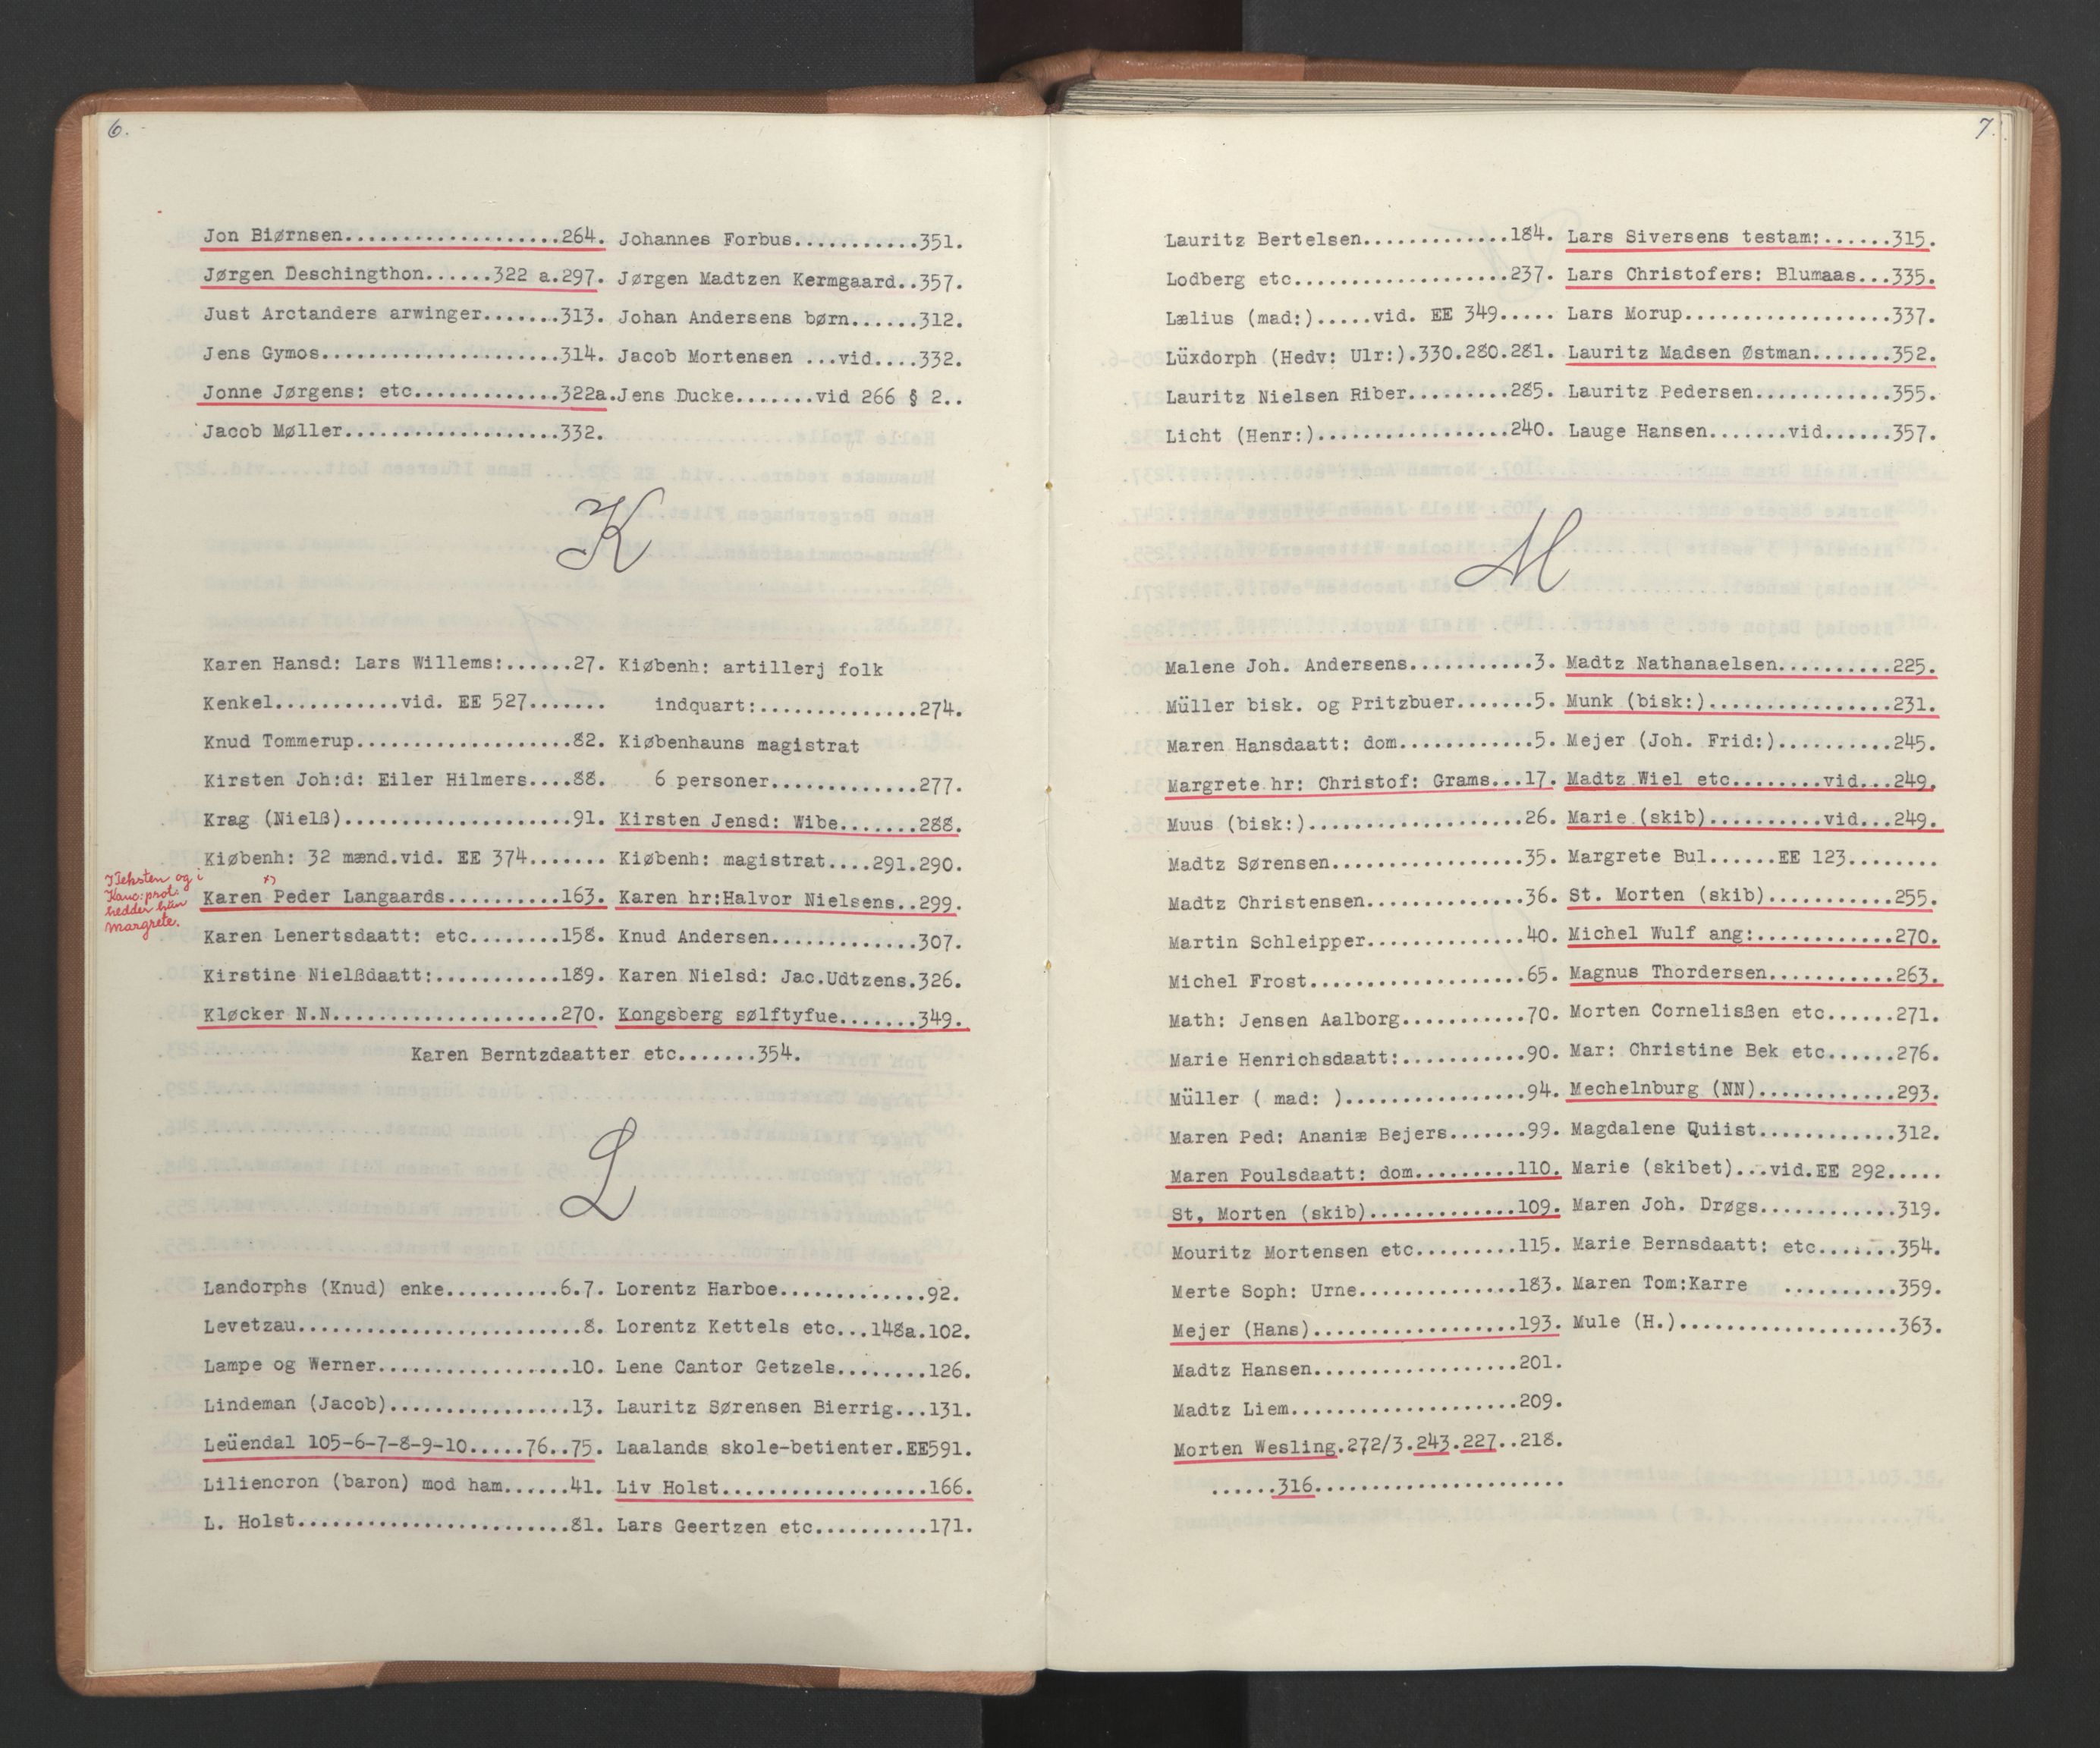 6.
Jon Biørnsen...................264.
Jørgen Deschingthon......322 a.297.
Just Arctanders arwinger.......313.
Jens Gymos.....................314.
Jonne Jørgens: etc.............322a.
Jacob Møller...................332.
Johannes Forbus...........351.
Jørgen Madtzen Kermgaard..357.
Johan Andersens børn......312.
Jacob Mortensen ...vid....332.
Jens Ducke.......vid 266 § 2..
K
Karen Hansd: Lars Willems:......27.
Kenkel...........vid. EE 527.......
Knud Tommerup...................82.
Kirsten Joh:d: Eiler Hilmers....88.
Krag (Nielß)....................91.
Kiøbenh: 32 mænd.vid. EE 374.......
Karen x) Peder Langaards..........163.
I Teksten og i
Kanc: prot:
hedder hun
Margrete.
Karen Lenertsdaatt: etc........158.
Kirstine Nielßdaatt:...........189.
Kløcker N.N....................270.
Kiøbenh: artillerj folk
indquart:..............274.
Kiøbenhauns magistrat
6 personer.............277.
Kirsten Jensd: Wibe.......288.
Kiøbenh: magistrat....291.290.
Karen hr:Halvor Nielsens..299.
Knud Andersen.............307.
Karen Nielsd: Jac.Udtzens.326.
Kongsberg sølftyfue.......349.
Karen Berntzdaatter etc.......354.
L
Landorphs (Knud) enke..........6.7.
Levetzau.........................8.
Lampe og Werner.................10.
Lindeman (Jacob)................13.
Leüendal 105-6-7-8-9-10.....76..75.
Liliencron (baron) mod ham......41.
L. Holst........................81.
Lorentz Harboe.............92.
Lorentz Kettels etc...148a.102.
Lene Cantor Getzels........126.
Lauritz Sørensen Bierrig...131.
Laalands skole-betienter.EE591.
Liv Holst..................166.
Lars Geertzen etc..........171.
7.
Lauritz Bertelsen.............184.
Lodberg etc...................237.
Lælius (mad:).....vid. EE 349.....
Lüxdorph (Hedv: Ulr:).330.280.281.
Lauritz Nielsen Riber.........285.
Licht (Henr:).................240.
Lars Siversens testam:......315.
Lars Christofers: Blumaas...335.
Lars Morup..................337.
Lauritz Madsen Østman.......352.
Lauritz Pedersen............355.
Lauge Hansen.......vid......357.
M
Malene Joh. Andersens...........3.
Müller bisk. og Pritzbuer.......5.
Maren Hansdaatt: dom............5.
Margrete hr: Christof: Grams...17.
Muus (bisk:)...................26.
Madtz Sørensen.................35.
Madtz Christensen..............36.
Martin Schleipper..............40.
Michel Frost...................65.
Math: Jensen Aalborg...........70.
Marie Henrichsdaatt:...........90.
Müller ( mad: )................94.
Maren Ped: Ananiæ Bejers.......99.
Maren Poulsdaatt: dom.........110.
St, Morten (skib).............109.
Mouritz Mortensen etc.........115.
Merte Soph: Urne..............183.
Mejer (Hans)..................193.
Madtz Hansen..................201.
Madtz Liem....................209.
Morten Wesling.272/3.243.227..218.
......316......................
Madtz Nathanaelsen..........225.
Munk (bisk:)................231.
Mejer (Joh. Frid:)..........245.
Madtz Wiel etc........vid...249.
Marie (skib)..........vid...249.
Margrete Bul......EE 123........
St. Morten (skib)...........255.
Michel Wulf ang:............270.
Magnus Thordersen...........263.
Morten Cornelisßen etc......271.
Mar: Christine Bek etc......276.
Mechelnburg (NN)............293.
Magdalene Quiist............312.
Marie (skibet)...vid.EE 292.....
Maren Joh. Drøgs............319.
Marie Bernsdaatt: etc.......354.
Maren Tom:Karre ..........359.
Mule (H.)...................363.